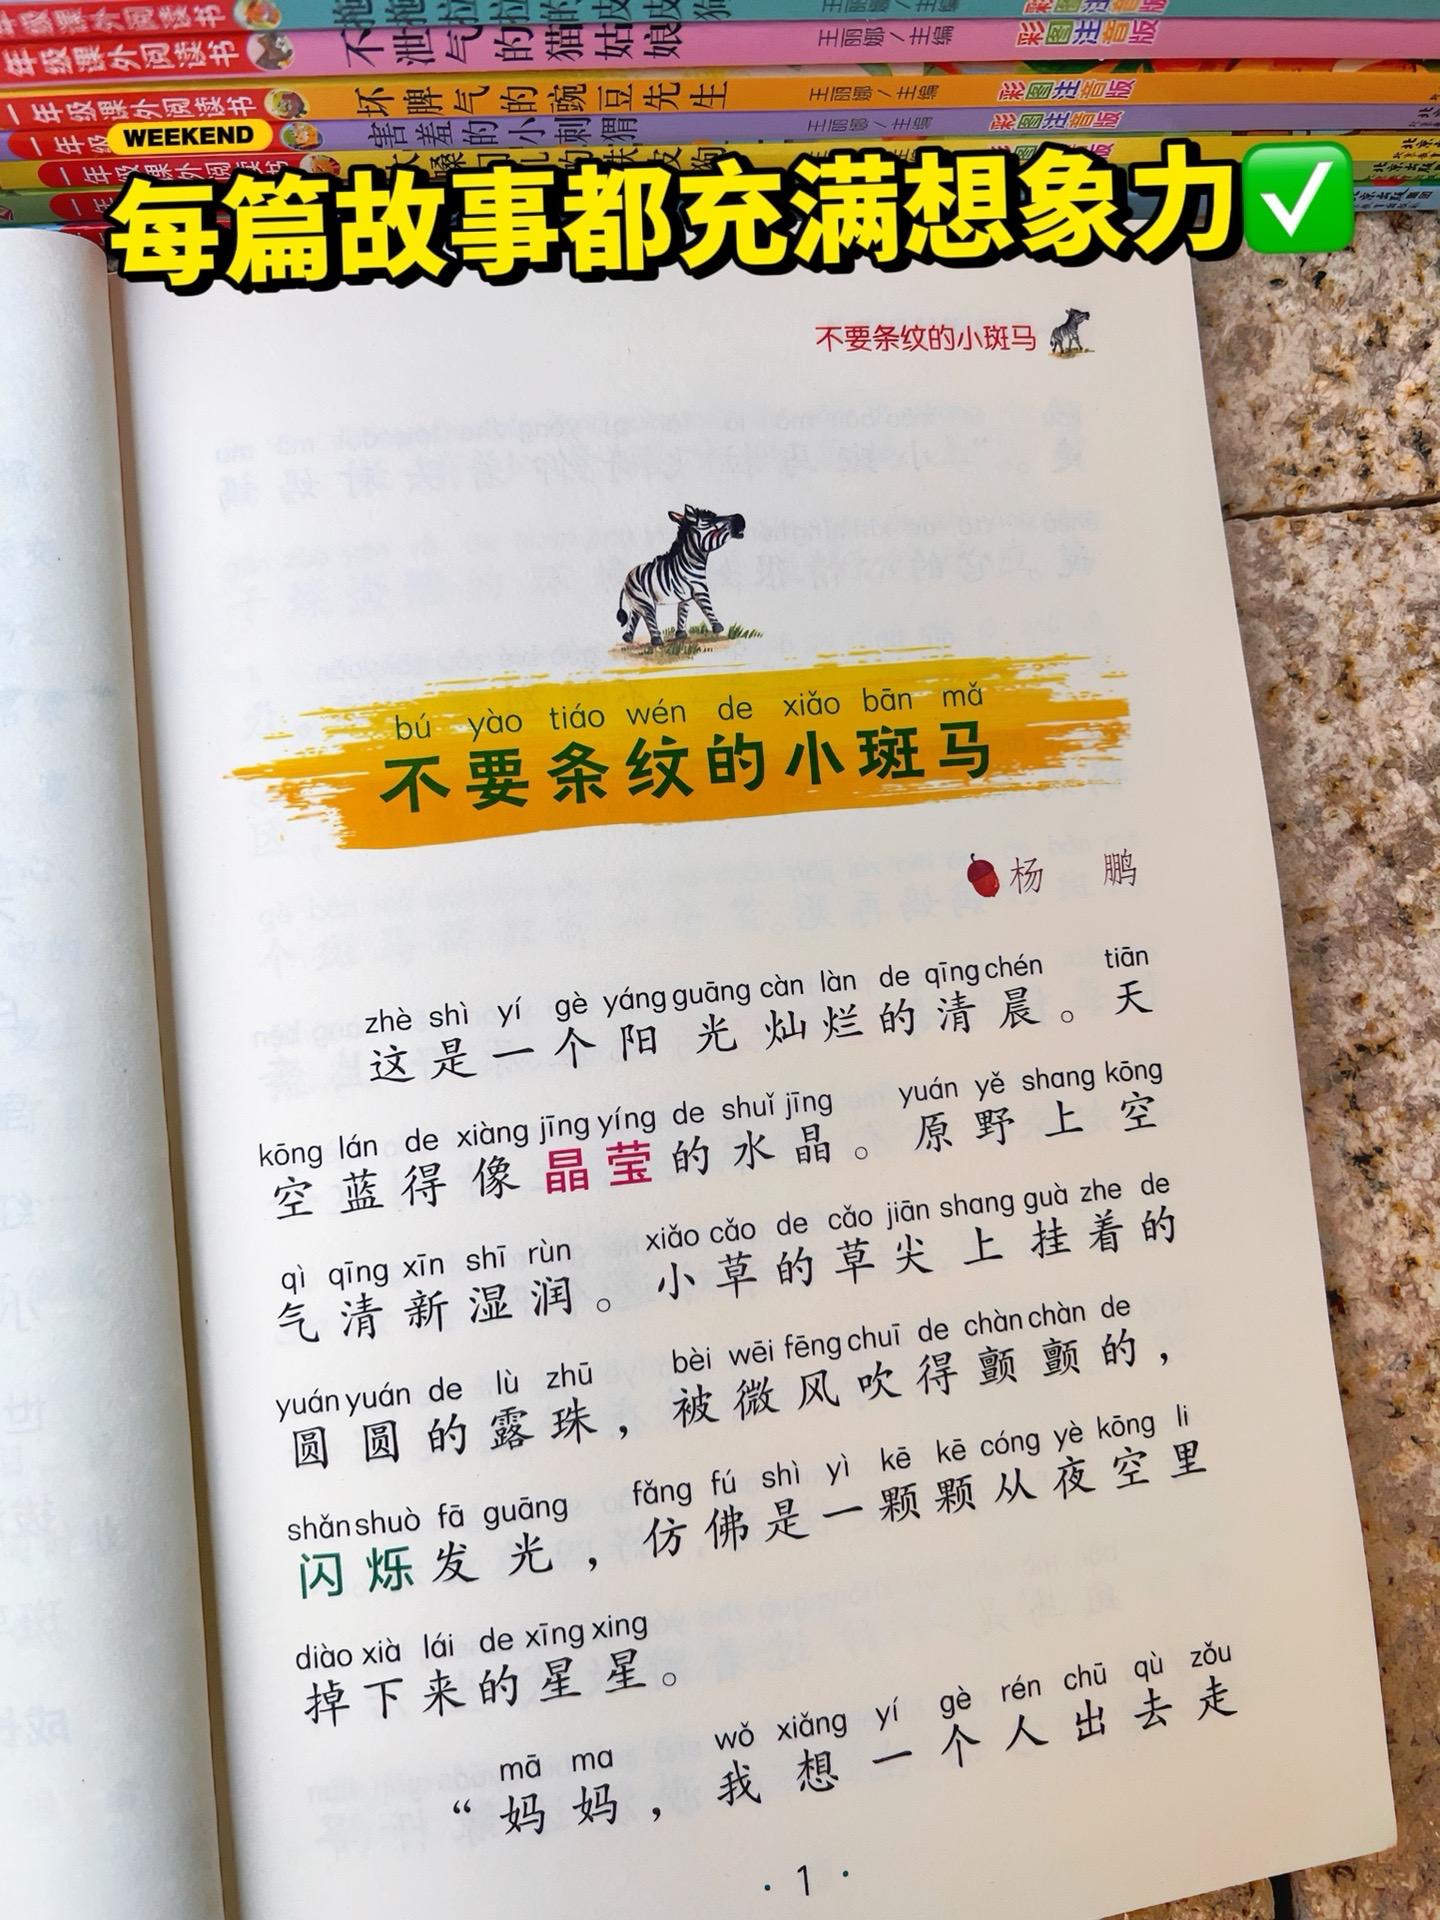 年级课外阅读书
不泄气的猫姑娘
王丽娜/主编
彩图注音版
一年级课外阅读书
坏脾气的豌豆先生
王丽娜/主编
彩图注音版
一年级
害羞的小刺猬
王丽娜/主编
彩图注音版
WEEKEND
一年级课外阅读书
每篇故事都充满想象力✅
不要条纹的小斑马
bú yào tiáo wén de xiǎo bān mǎ
不要条纹的小斑马
杨 鹏
zhè shì yí gè yáng guāng càn làn de qīng chén tiān
这是一个阳光灿烂的清晨。天
kōng lán de xiàng jīng yíng de shuǐ jīng yuán yě shang kōng
空蓝得像晶莹的水晶。原野上空
qì qīng xīn shī rùn xiǎo cǎo de cǎo jiān shang guà zhe de
气清新湿润。小草的草尖上挂着的
yuán yuán de lù zhū bèi wēi fēng chuī de chàn chàn de
圆圆的露珠，被微风吹得颤颤的，
shǎn shuò fā guāng fǎng fú shì yì kē kē cóng yè kōng li
闪烁发光，仿佛是一颗颗从夜空里
diào xià lái de xīng xing
掉下来的星星。
mā ma wǒ xiǎng yí gè rén chū qù zǒu
“妈妈，我想一个人出去走
· 1 ·